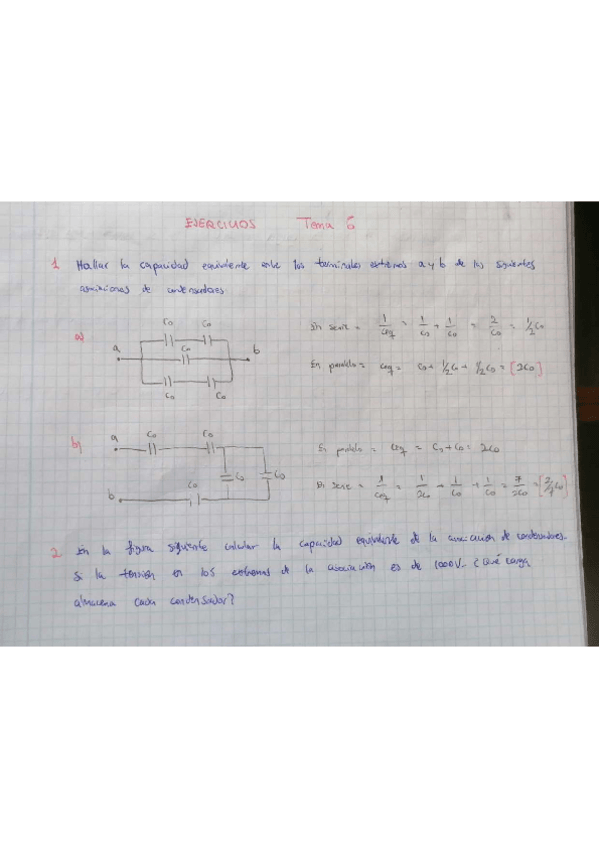 EJERCICIOS Tema 6
1 Hallar la capacidad equivalente entre los terminales extremos a y b de las siguientes
asociaciones de condensadores
a)
C0 C0
a C0 b
C0 C0
En serie = 1/Ceq = 1/C0 + 1/C0 = 2/C0 = 1/2 C0
En paralelo = Ceq = C0 + 1/2 C0 + 1/2 C0 = [2C0]
b)
a C0 C0
C0 C0
b C0
En paralelo = Ceq = C0 + C0 = 2C0
En serie = 1/Ceq = 1/2C0 + 1/C0 + 1/C0 = 7/2C0 = [2/7 C0]
2 En la figura siguiente calcular la capacidad equivalente de la asociación de condensadores.
Si la tensión en los extremos de la asociación es de 1000V. ¿Qué carga
almacena cada condensador?